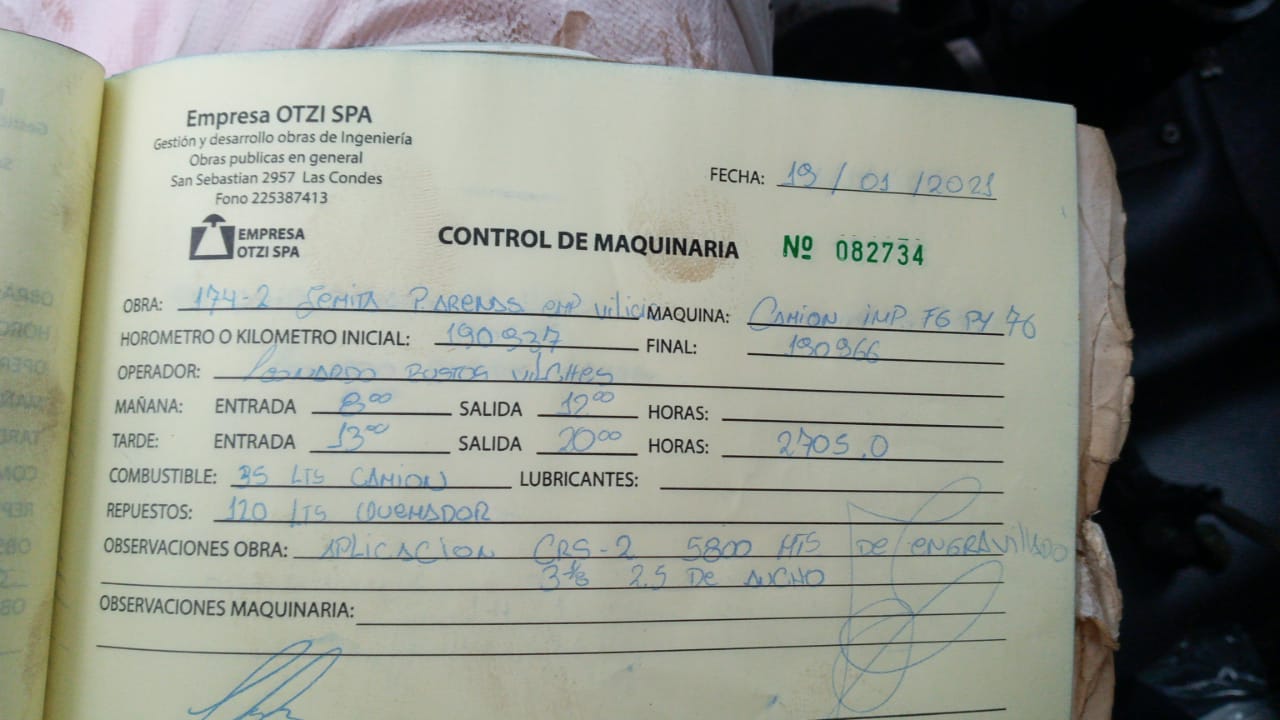 Empresa OTZI SPA
Gestión y desarrollo obras de Ingeniería
Obras publicas en general
San Sebastian 2957 Las Condes
Fono 225387413
FECHA: 19 / 01 / 2021
EMPRESA
OTZI SPA
CONTROL DE MAQUINARIA Nº 082734
OBRA: 174-2 P. ARENAS MAQUINA: CAMION IMP. FG PY 76
HOROMETRO O KILOMETRO INICIAL: 190937 FINAL: 190966
OPERADOR: LEONARDO BUSTOS VILCHES
MAÑANA: ENTRADA 8:00 SALIDA 12:00 HORAS:
TARDE: ENTRADA 13:00 SALIDA 20:00 HORAS: 2705.0
COMBUSTIBLE: 35 LTS CAMION LUBRICANTES:
REPUESTOS: 120 LTS QUEMADOR
OBSERVACIONES OBRA: APLICACION CRS-2 5800 MTS DE ENGRAVILLADO
2.5 DE ANCHO
OBSERVACIONES MAQUINARIA: